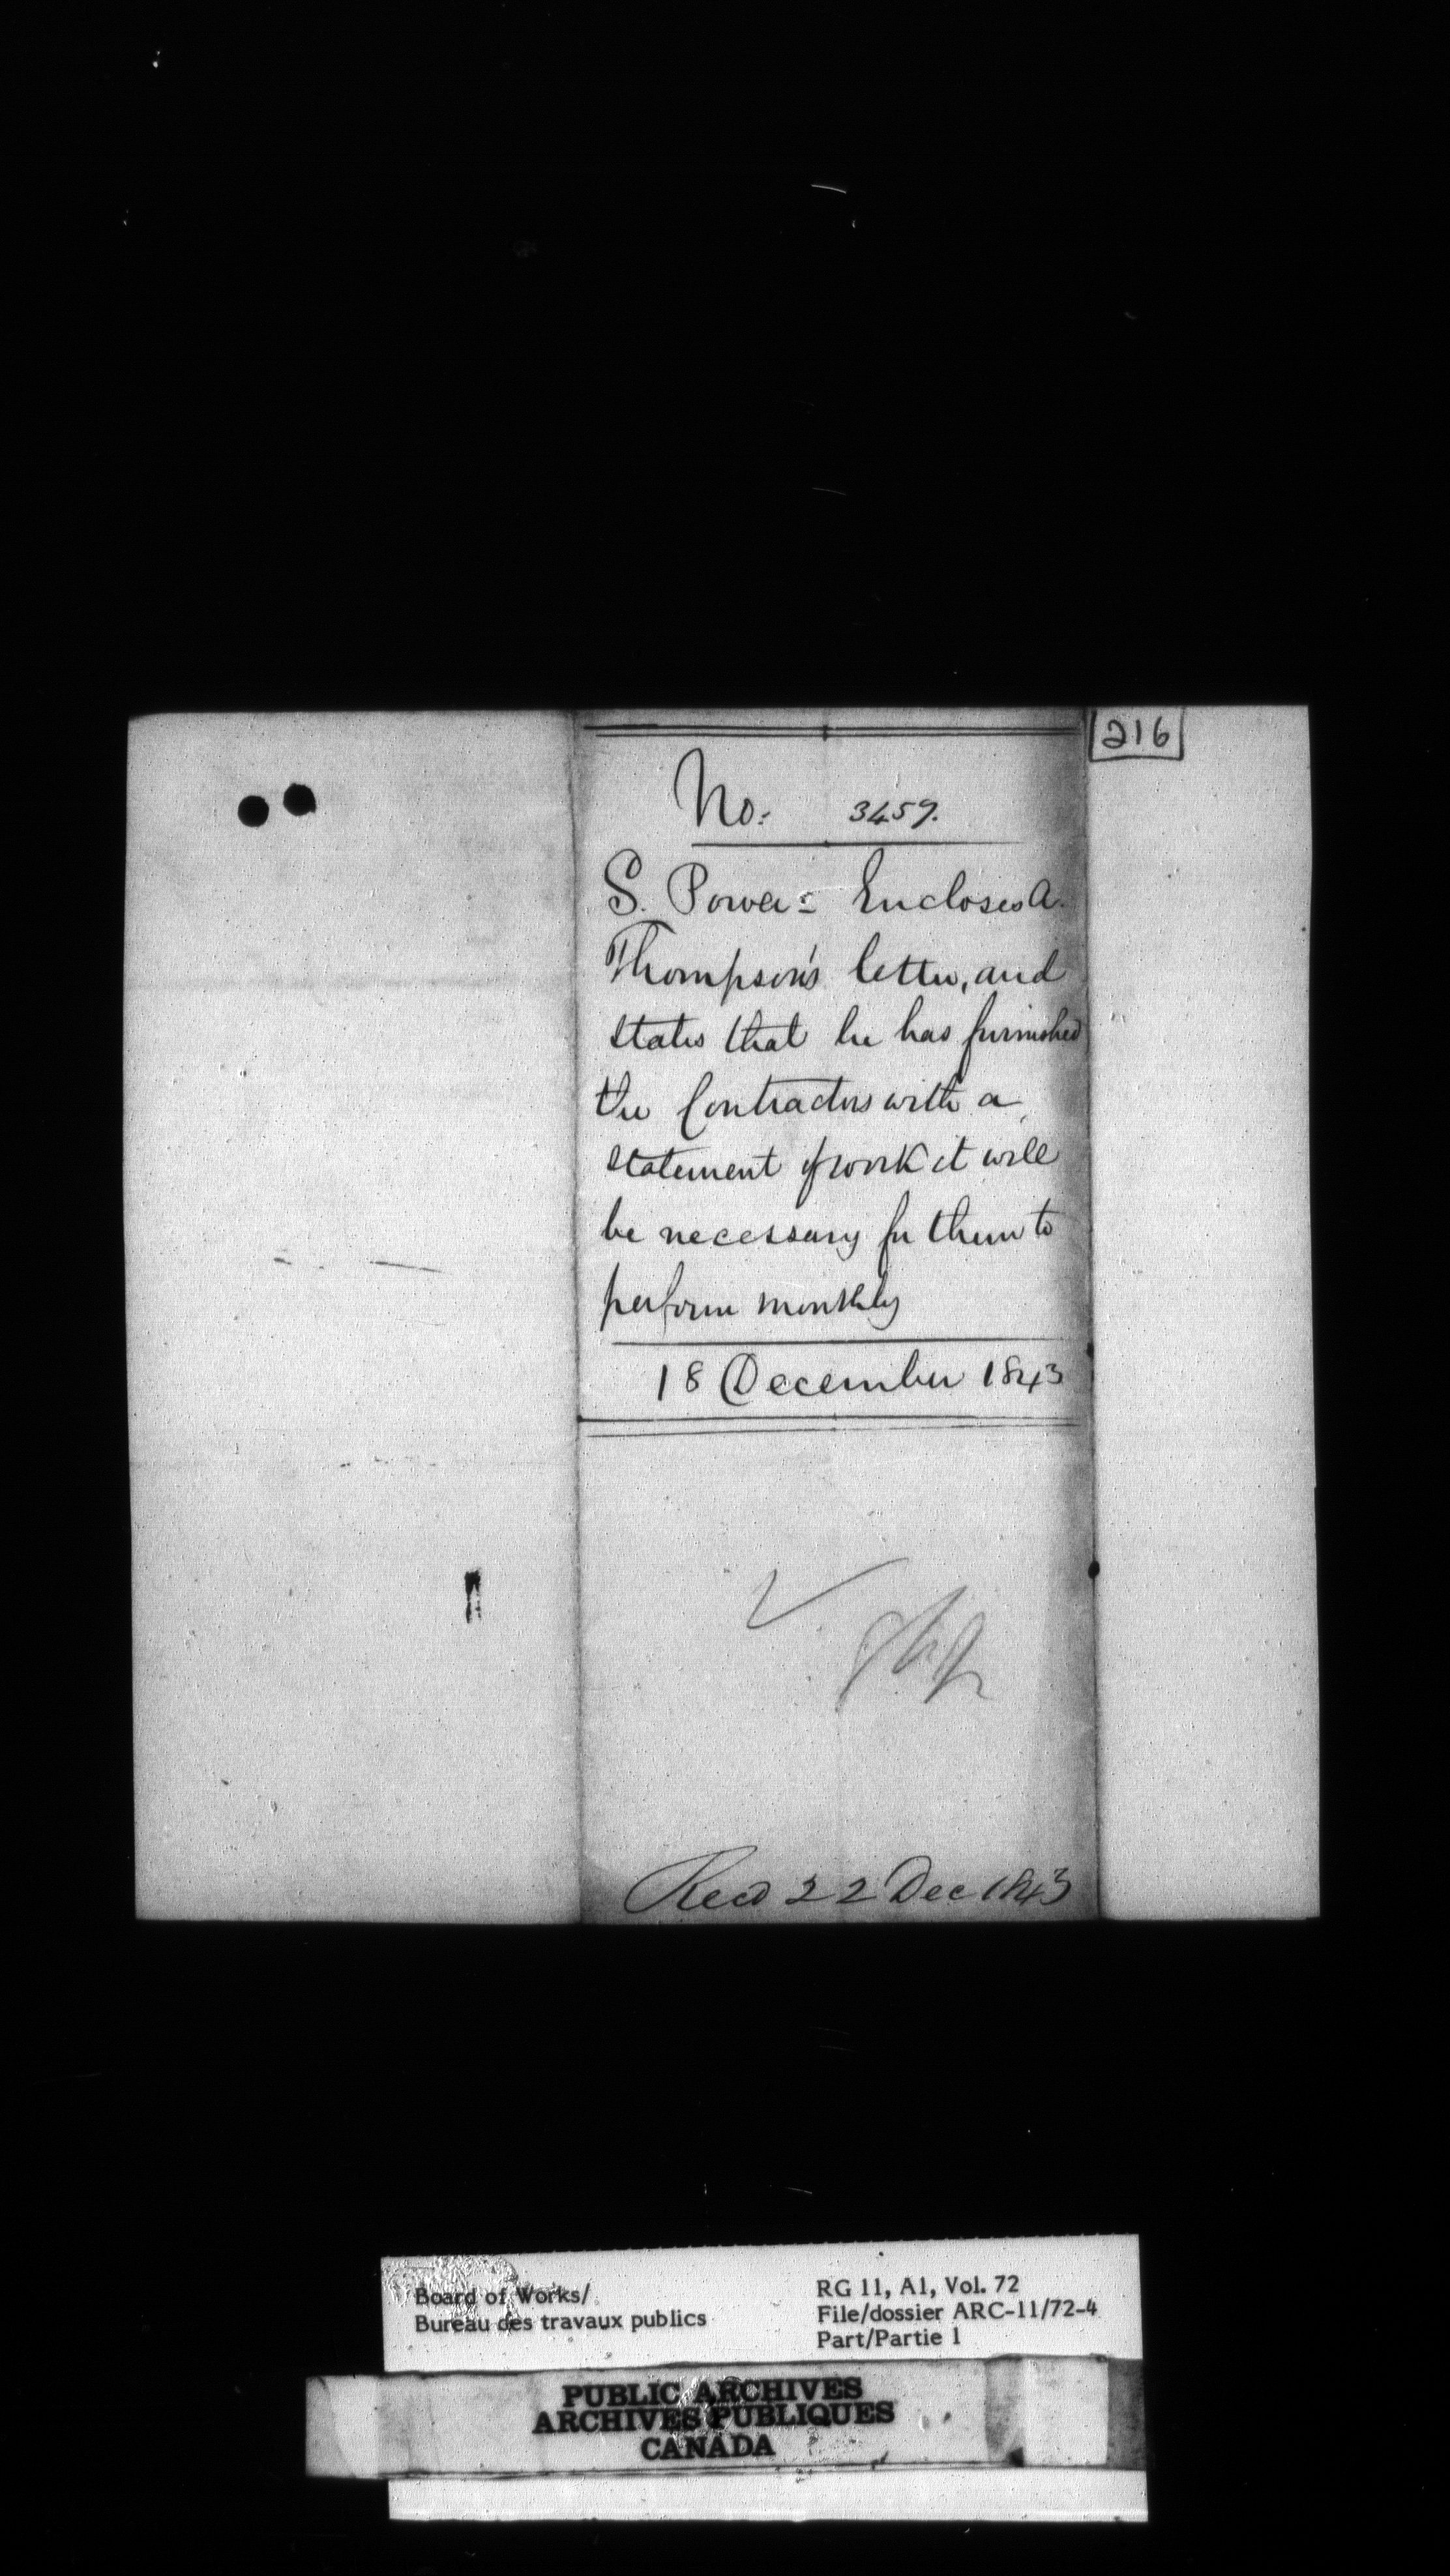 216
No: 3459.
S. Power = Encloses A.
Thompson's letter, and
states that he has furnished
the Contractors with a
statement of work it will
be necessary for them to
perform monthly
18 December 1843
Recd 22 Dec 1843
Board of Works/
Bureau des travaux publics
RG 11, A1, Vol. 72
File/dossier ARC-11/72-4
Part/Partie 1
PUBLIC ARCHIVES
ARCHIVES PUBLIQUES
CANADA